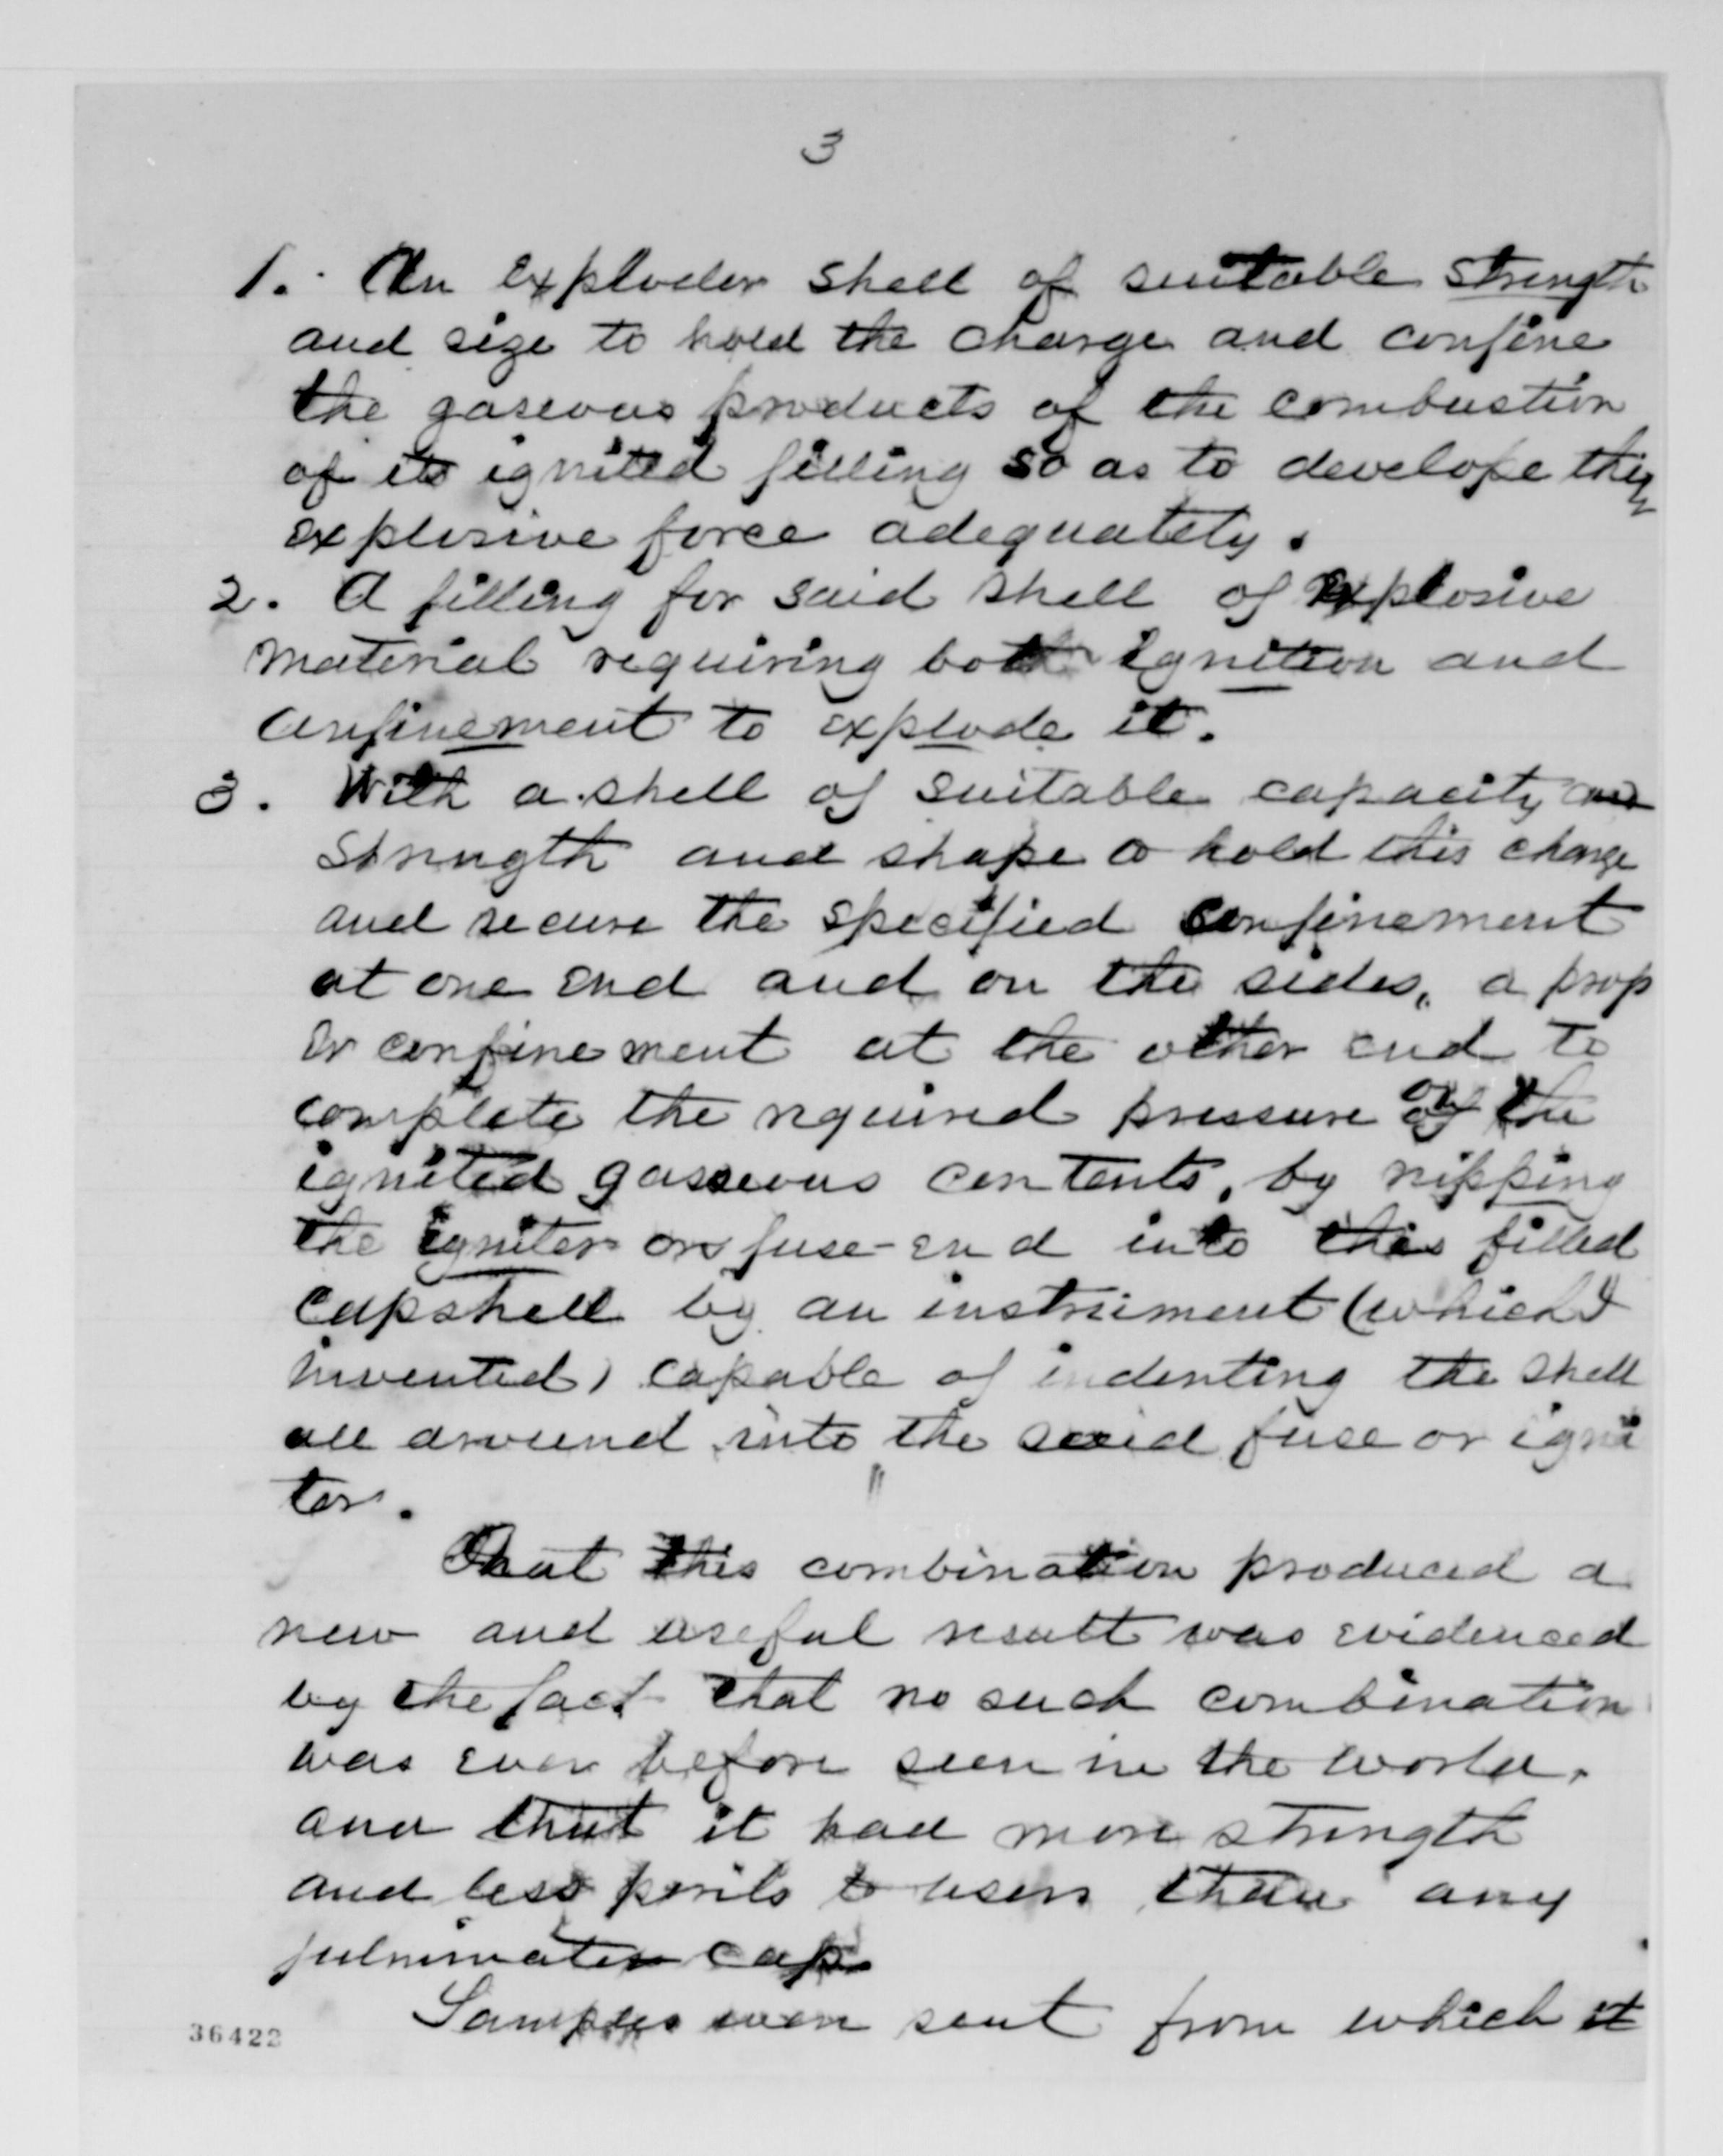 3
1. An exploder shell of suitable strength
and size to hold the charge and confine
the gaseous products of the combustion
of its ignited filling so as to develope this
explosive force adequately.
2. A filling for said shell of explosive
material requiring both ignition and
confinement to explode it.
3. With a shell of suitable capacity and
strength and shape to hold this charge
and secure the specified confinement
at one end and on the sides, a prop
er confinement at the other end to
complete the required pressure of the
ignited gaseous contents, by nipping
the igniter or fuse-end into this filled
capshell by an instrument (which I
invented) capable of indenting the shell
all around into the said fuse or igni
tor.
That this combination produced a
new and useful result was evidenced
by the fact that no such combination
was ever before seen in the world.
and that it had more strength
and less perils to users than any
fulminate cap
Samples were sent from which it
36422